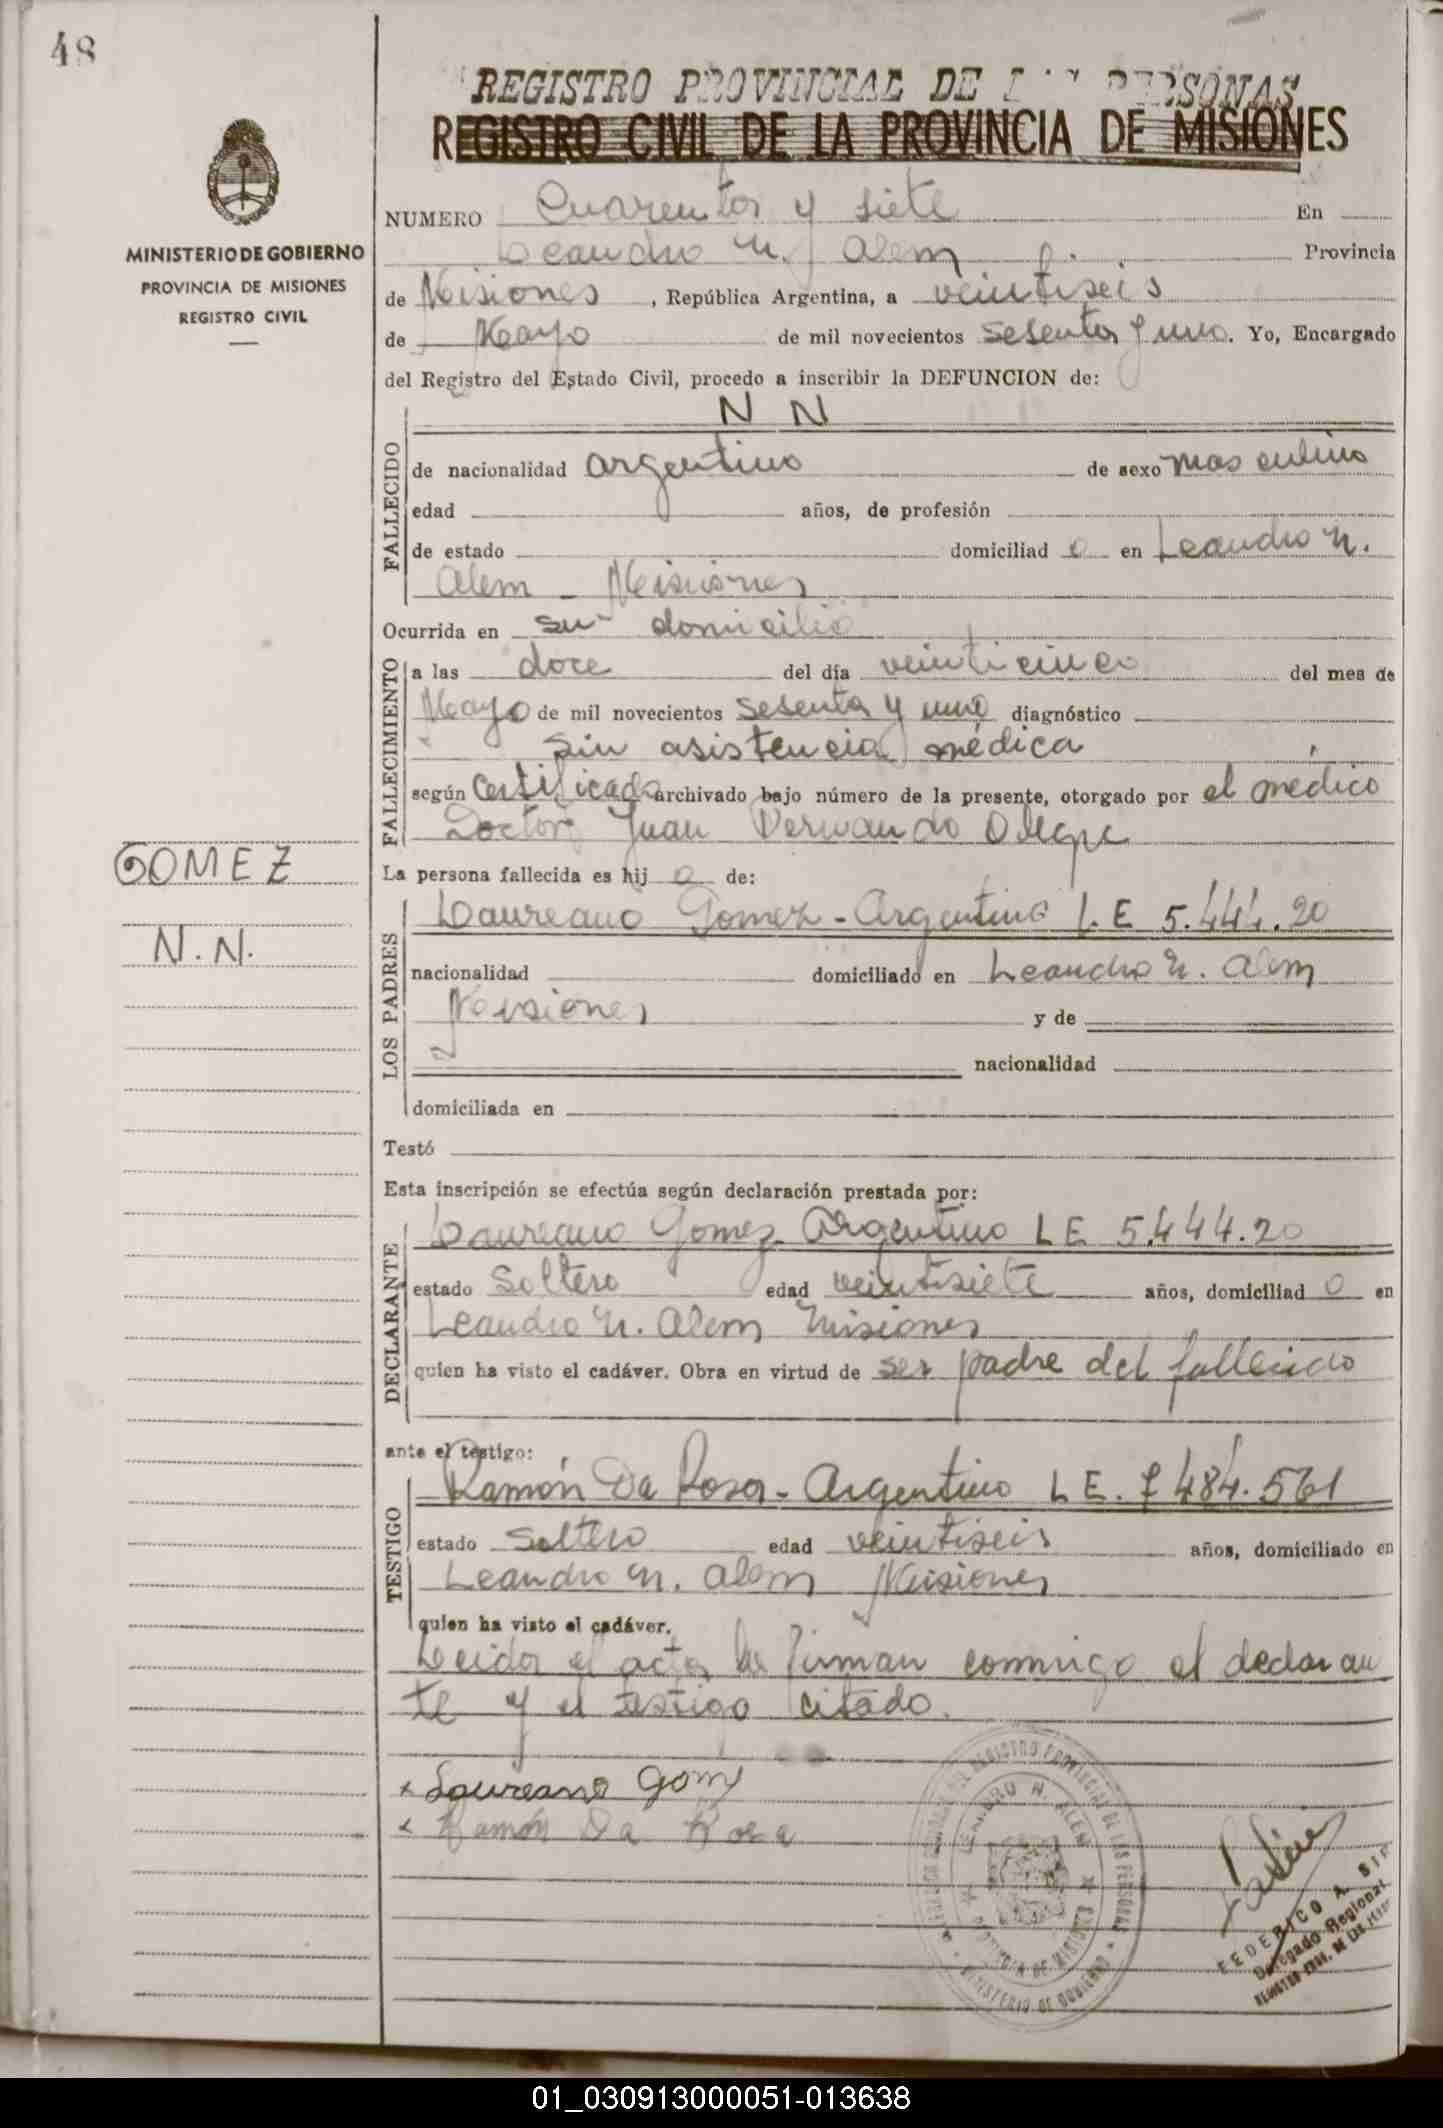 48
REGISTRO PROVINCIAL DE LAS PERSONAS
REGISTRO CIVIL DE LA PROVINCIA DE MISIONES
MINISTERIO DE GOBIERNO
PROVINCIA DE MISIONES
REGISTRO CIVIL
NUMERO Cuarenta y siete En
Leandro N. Alem Provincia
de Misiones, República Argentina, a veintiseis
de Mayo de mil novecientos sesenta y uno. Yo, Encargado
del Registro del Estado Civil, procedo a inscribir la DEFUNCION de:
N N
FALLECIDO
de nacionalidad argentino de sexo masculino
edad años, de profesión
de estado domiciliad o en Leandro N.
Alem - Misiones
Ocurrida en su domicilio
FALLECIMIENTO
a las doce del día veinticinco del mes de
Mayo de mil novecientos sesenta y uno diagnóstico
sin asistencia médica
según certificado archivado bajo número de la presente, otorgado por el médico
Doctor Juan Bernando
GOMEZ
N.N.
La persona fallecida es hij o de:
LOS PADRES
Laureano Gomez - Argentino L.E 5.444.20
nacionalidad domiciliado en Leandro N. Alem
Misiones y de
nacionalidad
domiciliada en
Testó
Esta inscripción se efectúa según declaración prestada por:
DECLARANTE
Laureano Gomez Argentino L E 5.444.20
estado Soltero edad veintisiete años, domiciliad o en
Leandro N. Alem Misiones
quien ha visto el cadáver. Obra en virtud de ser padre del fallecido
ante el testigo:
TESTIGO
Ramón Da Rosa - Argentino L E. 7 484.561
estado Soltero edad veintiseis años, domiciliado en
Leandro N. Alem Misiones
quien ha visto el cadáver.
Leida el acta la firman conmigo el declaran
te y el testigo citado.
x Laureano Gomz
x Ramón Da Rosa
REGISTRO PROVINCIAL DE LAS PERSONAS
LEANDRO N. ALEM
PROVINCIA DE MISIONES
MINISTERIO DE GOBIERNO
FEDERICO A.
Delegado Regional
01_030913000051-013638